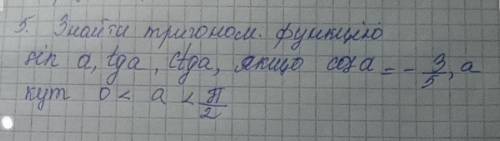 5. Знайти тригоном. функцію
sin a, tga, ctga, якщо cosa = - 3/5, а
кут 0 < a < π/2